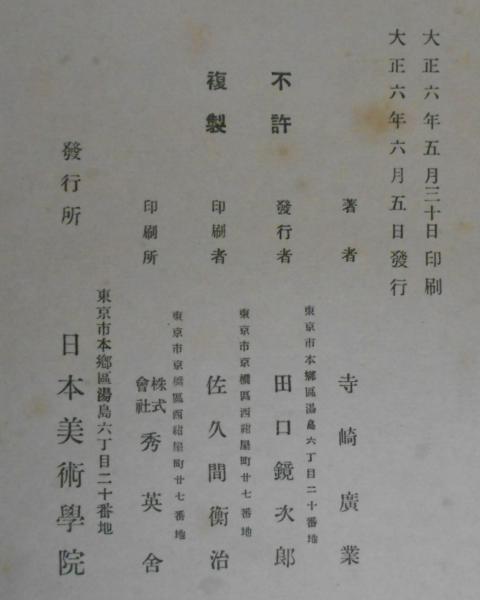 大正六年五月三十日印刷
大正六年六月五日發行
不許複製
著者　寺崎廣業
東京市本鄕區湯島六丁目二十番地
發行者　田口鏡次郞
東京市京橋區西紺屋町廿七番地
印刷者　佐久間衡治
東京市京橋區西紺屋町廿七番地
印刷所　株式會社　秀英舍
東京市本鄕區湯島六丁目二十番地
發行所　日本美術學院